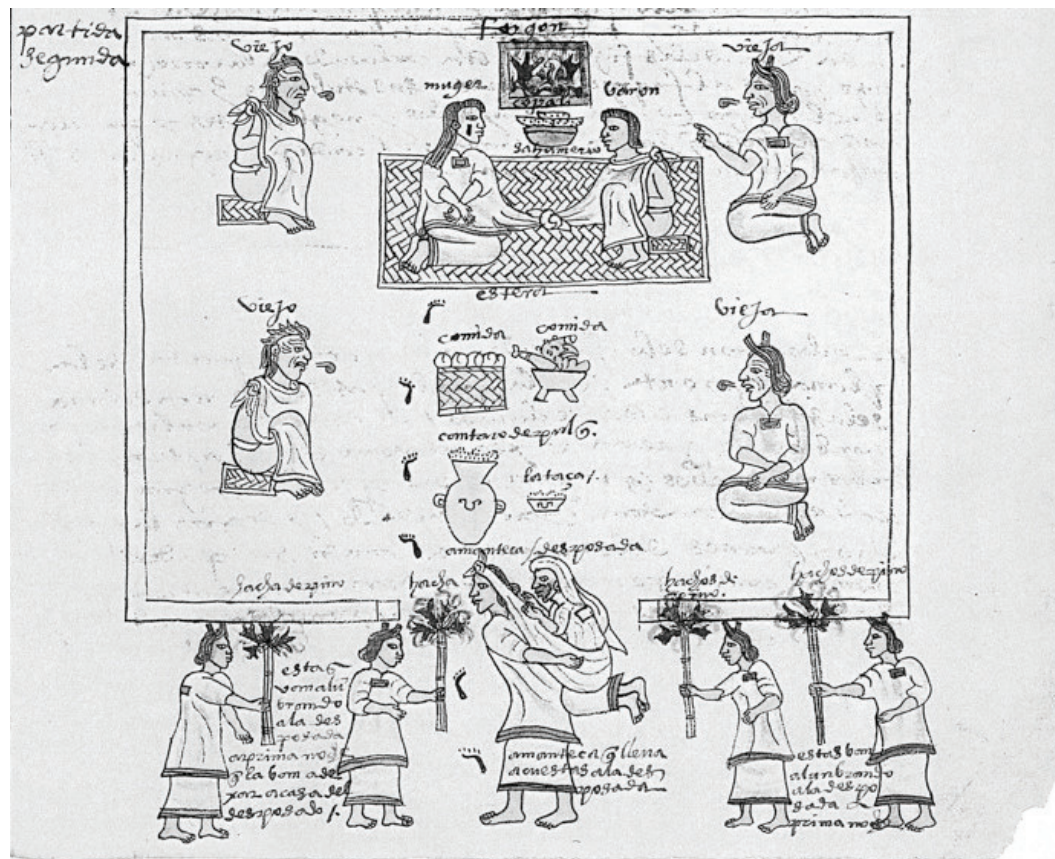 partida
segunda
fogon
viejo
vieja
muger
copali
varon
sahumerio
estera
viejo
vieja
comida
comida
cantaro de pulq̃.
la taça /.
amanteca / desposada
hacha de pino
hacha
hachos de
pino.
hachos de pino
estas
van alu
brando
a la des
posada
a prima noche
q̃ la llevan a
casa del
desposado /.
amanteca q̃ lleva
acuestas a la des
posada
estas van
alunbrando
a la despo
sada a
prima noche